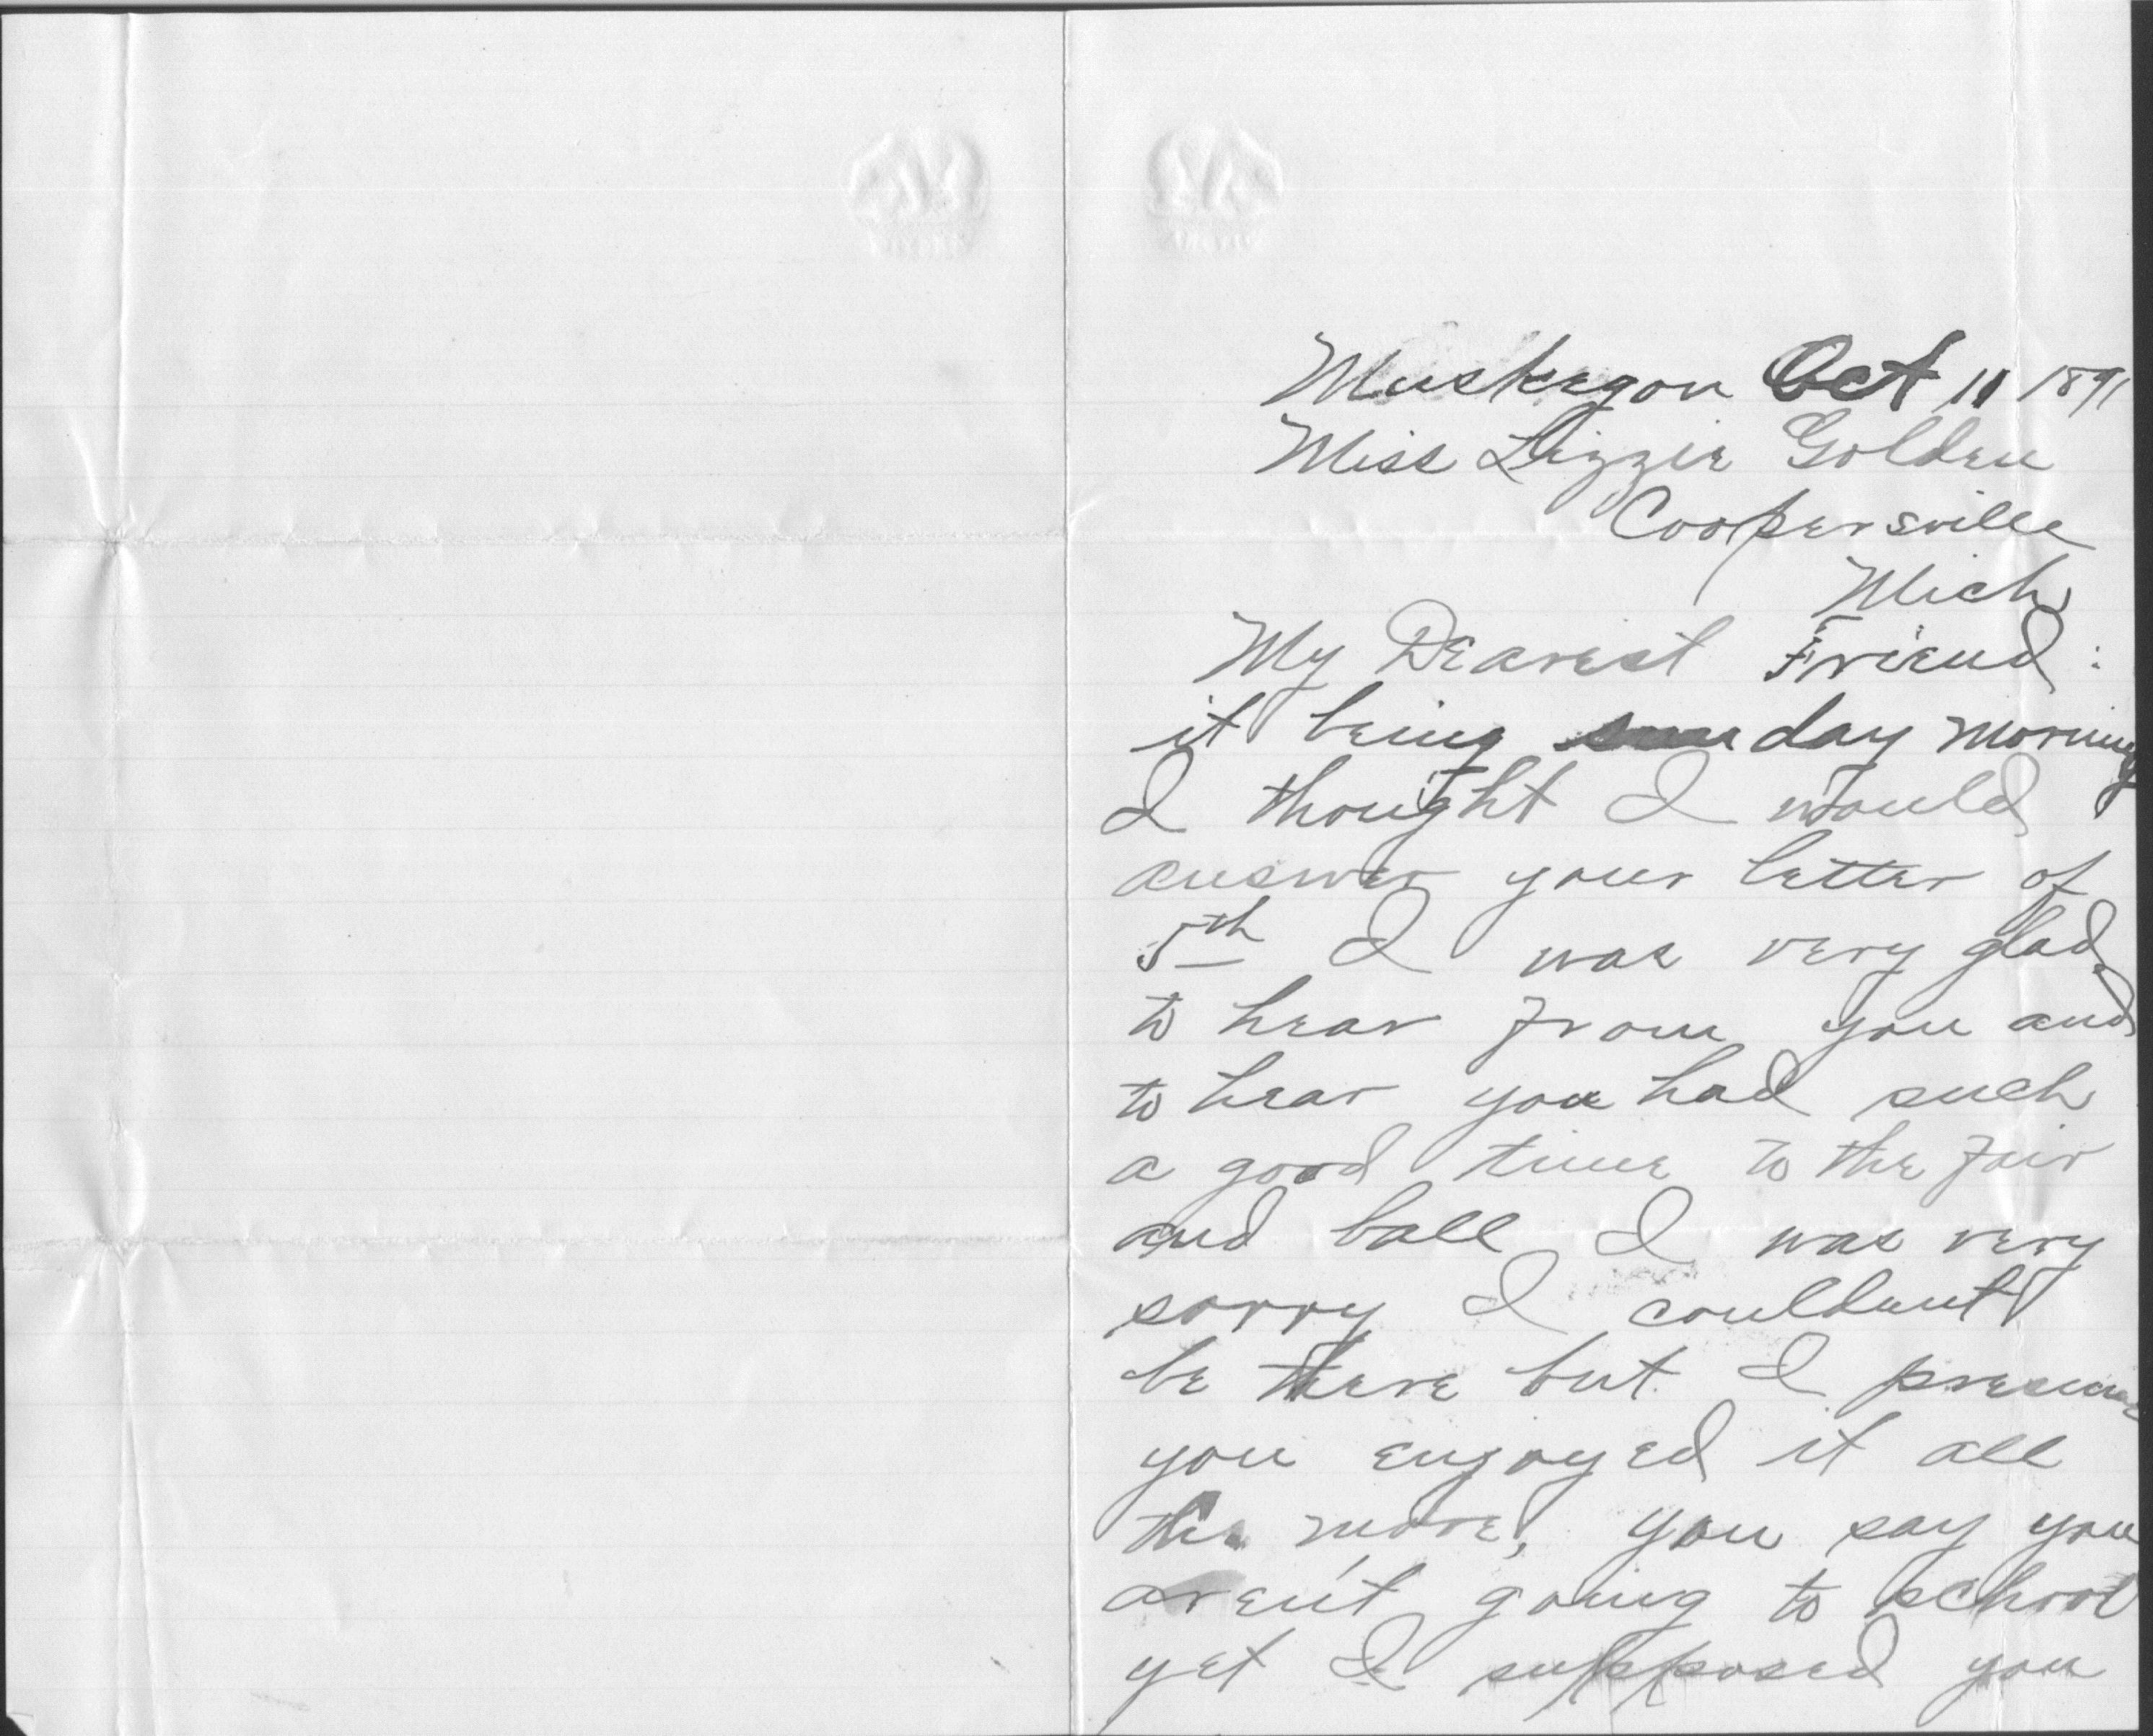 Muskegon Oct 11 1891
Miss Lizzie Golden
Coopersville
Mich
My Dearest Friend:
it being sunday morning
I thought I would
answer your letter of
5th I was very glad
to hear from you and
to hear you had such
a good time to the fair
and ball I was very
sorry I couldent
be there but I presume
you enjoyed it all
the more, you say you
aren't going to school
yet I supposed you